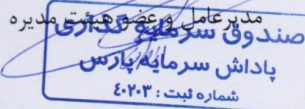 مدیرعامل و عضو هیئت مدیره
صندوق سرمایه گذاری
پاداش سرمایه پارس
شماره ثبت : ۴۰۲۰۳